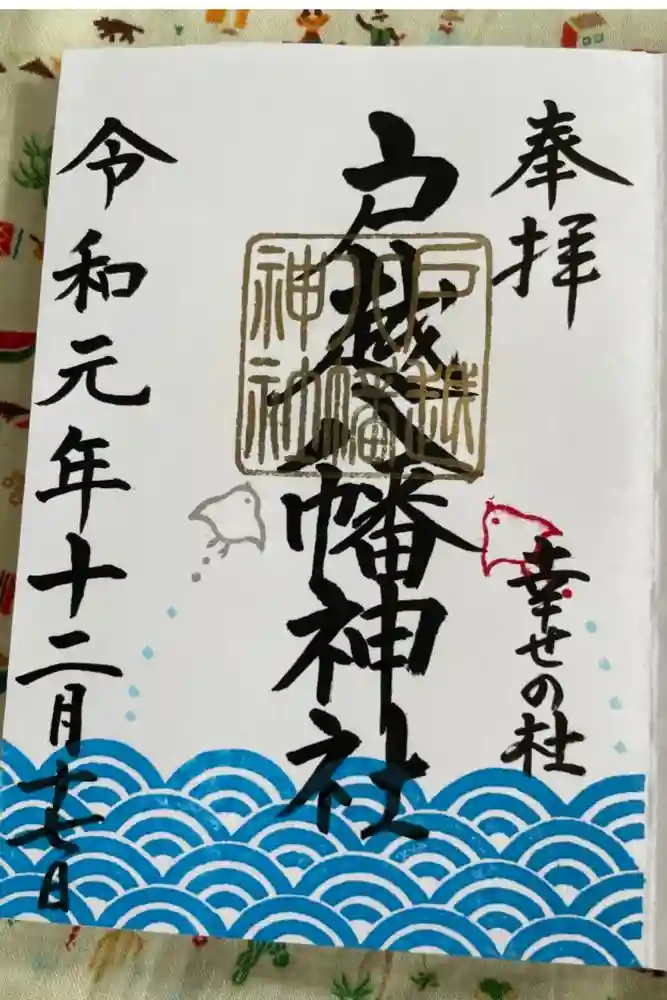 奉拝
幸せの杜
戸越八幡神社
戸越
八幡
神社
令和元年十二月十七日